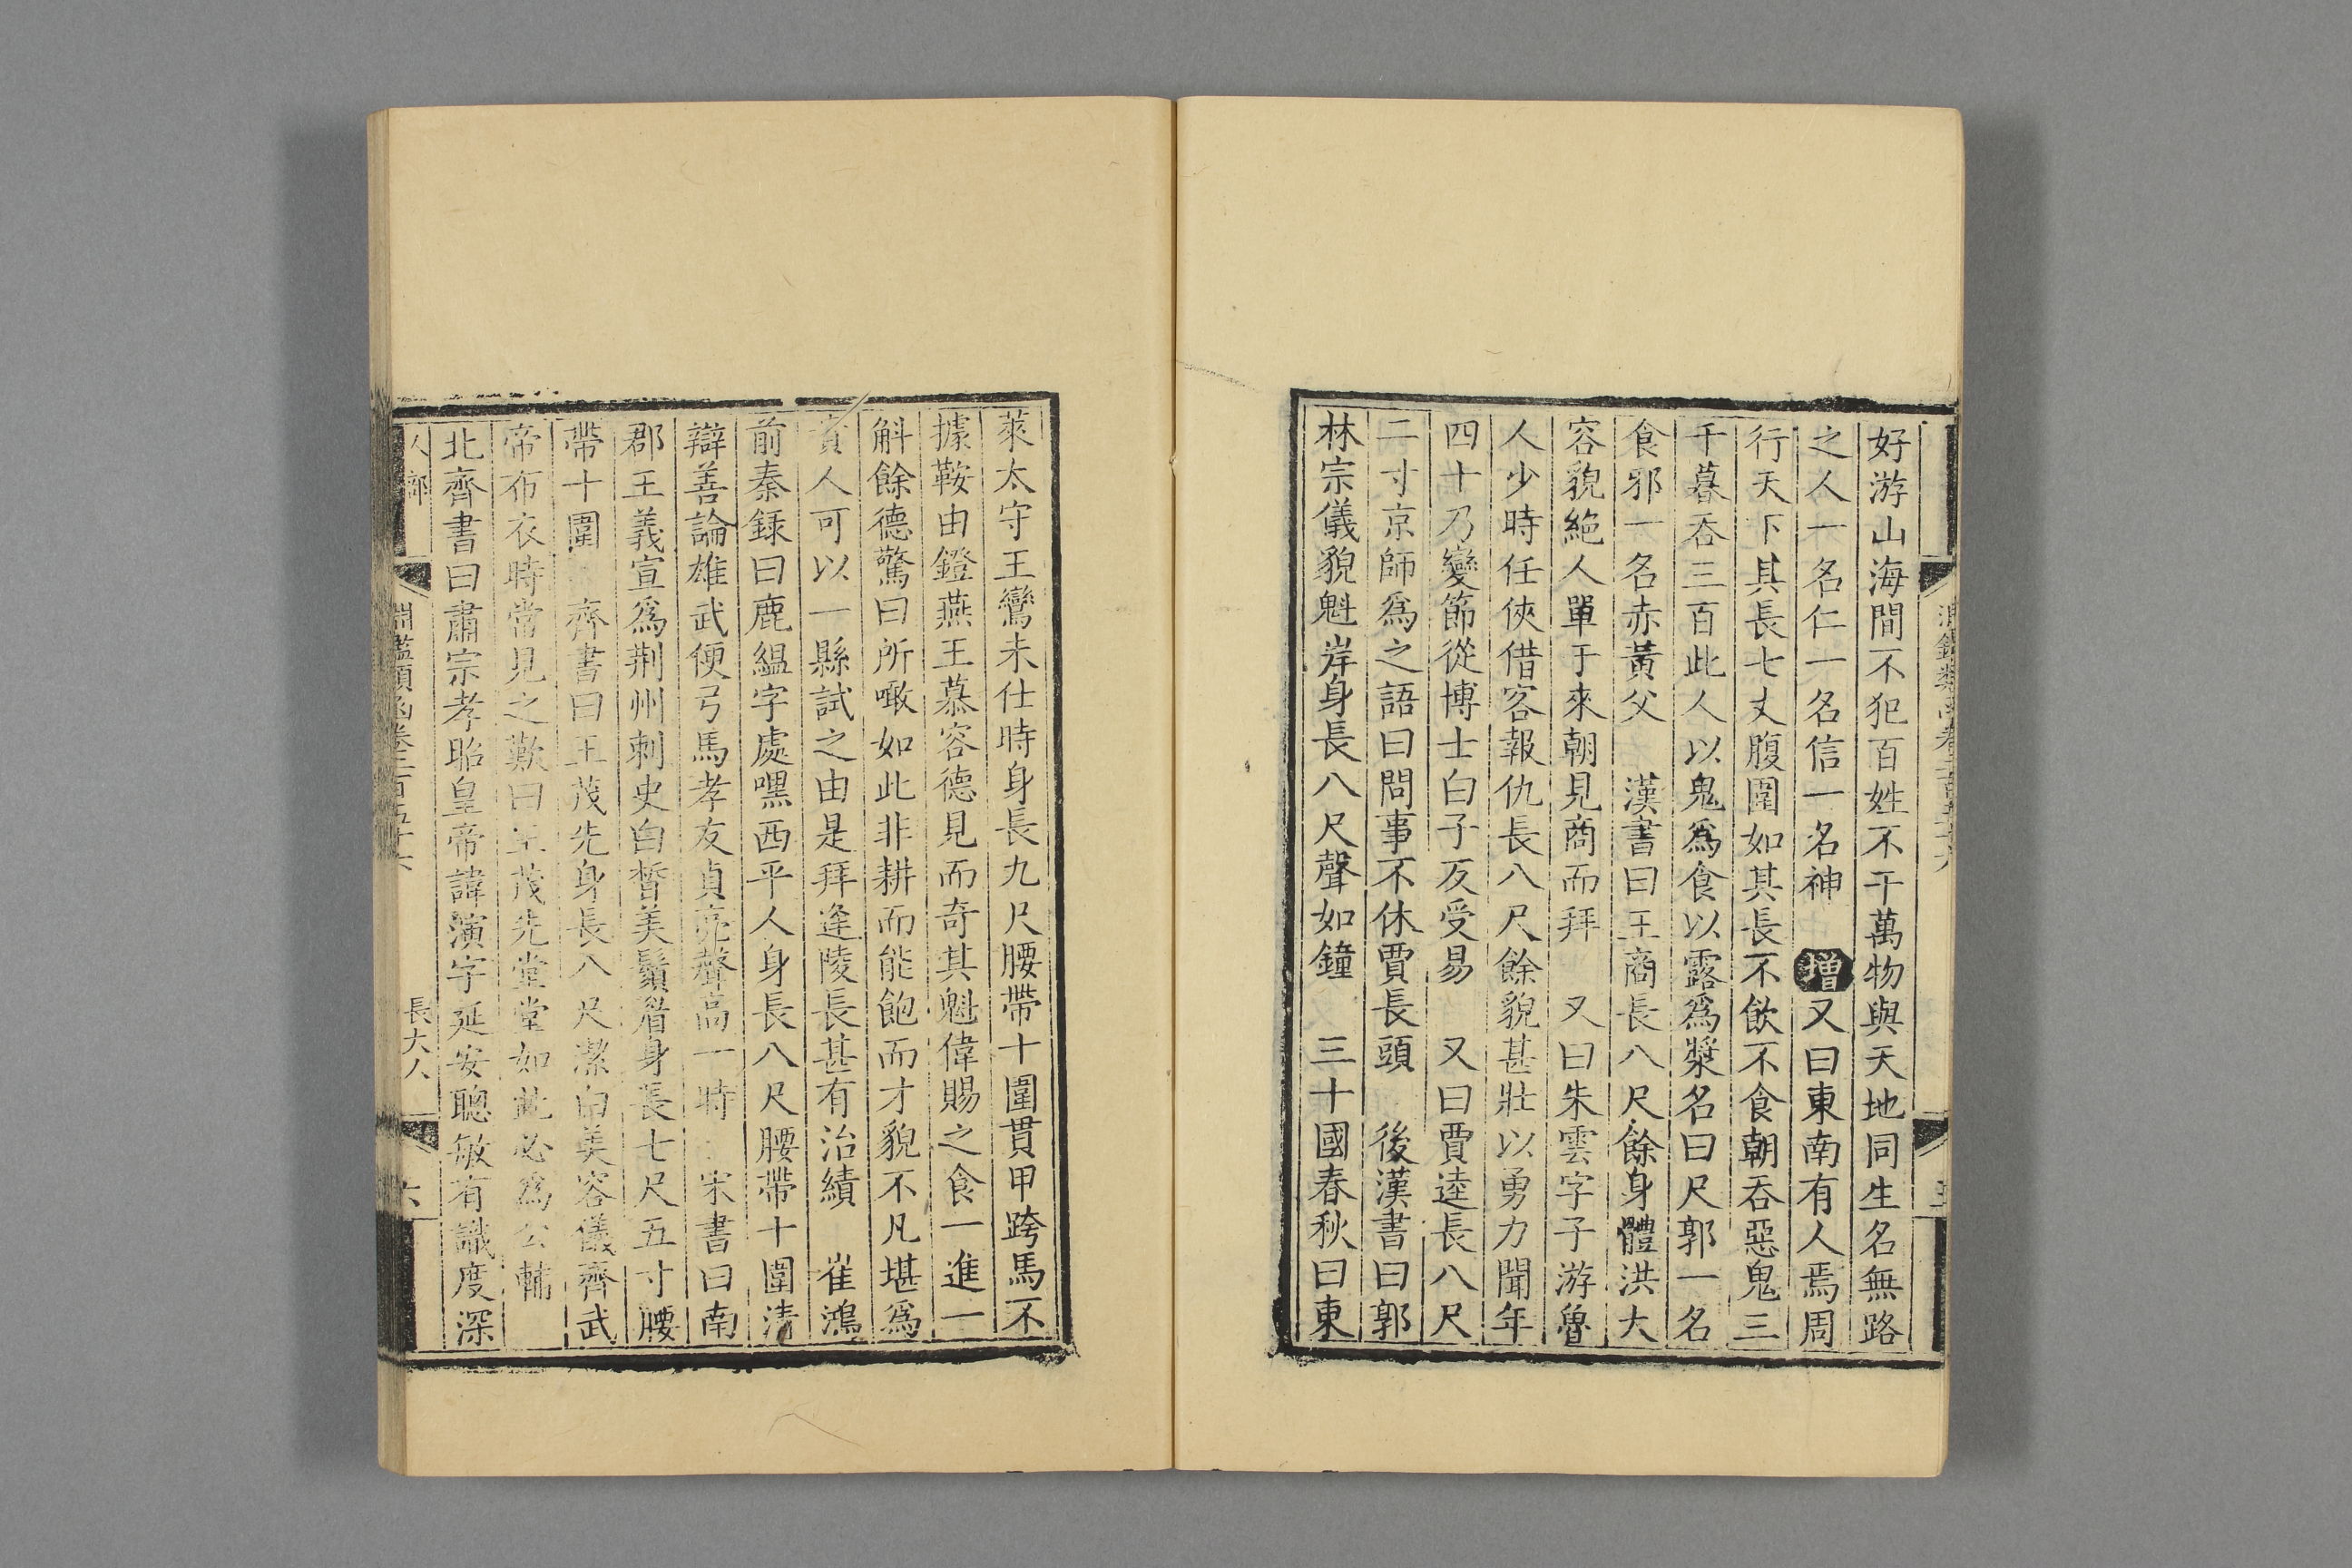 好游山海間不犯百姓不干萬物與天地同生名無路
之人一名仁一名信一名神　增又曰東南有人焉周
行天下其長七丈腹圍如其長不飲不食朝吞惡鬼三
千暮吞三百此人以鬼爲食以露爲漿名曰尺郭一名
食邪一名赤黃父　漢書曰王商長八尺餘身體洪大
容貌絶人單于來朝見商而拜　又曰朱雲字子游魯
人少時任俠借客報仇長八尺餘貌甚壯以勇力聞年
四十乃變節從博士白子友受易　又曰賈逵長八尺
二寸京師爲之語曰問事不休賈長頭　後漢書曰郭
林宗儀貌魁岸身長八尺聲如鐘　三十國春秋曰東
萊太守王鸞未仕時身長九尺腰帶十圍貫甲跨馬不
據鞍由鐙燕王慕容德見而奇其魁偉賜之食一進一
斛餘德驚曰所噉如此非耕而能飽而才貌不凡堪爲
貴人可以一縣試之由是拜逢陵長甚有治績　崔鴻
前秦録曰鹿緼字處嘿西平人身長八尺腰帶十圍清
辯善論雄武便弓馬孝友貞亮聲高一時　宋書曰南
郡王義宣爲荆州刺史白皙美鬚眉身長七尺五寸腰
帶十圍　齊書曰王茂先身長八尺潔白美容儀齊武
帝布衣時嘗見之歎曰王茂先堂堂如此必爲公輔
北齊書曰肅宗孝昭皇帝諱演字延安聰敏有識度深
人部　淵鑑類函卷二百五十六　長大人　六